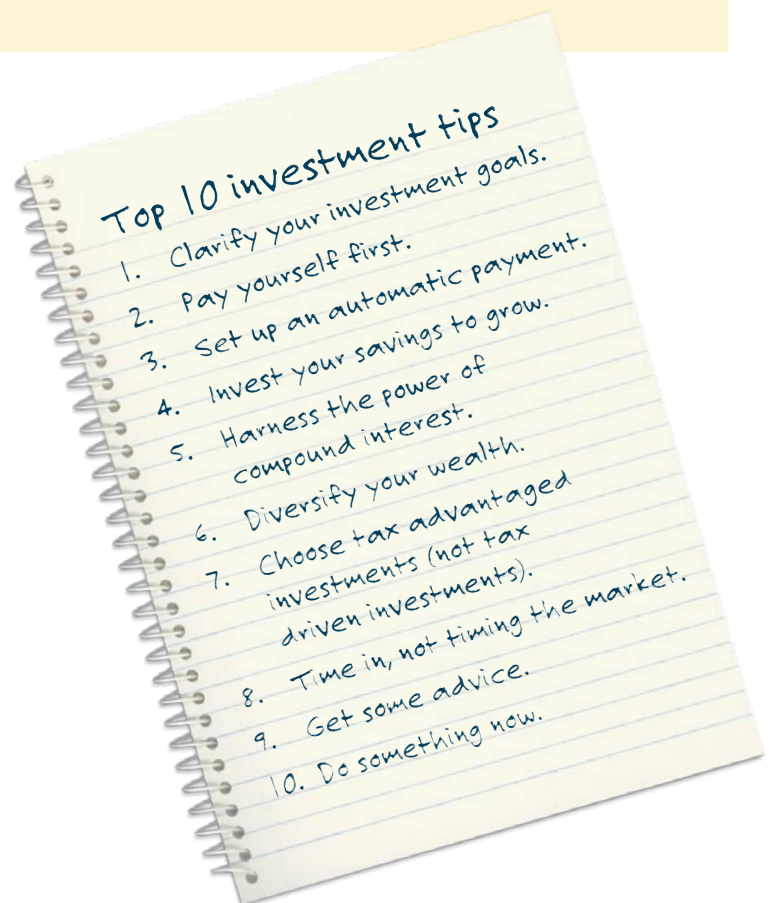 Top 10 investment tips
1. Clarify your investment goals.
2. Pay yourself first.
3. Set up an automatic payment.
4. Invest your savings to grow.
5. Harness the power of
compound interest.
6. Diversify your wealth.
7. Choose tax advantaged
investments (not tax
driven investments).
8. Time in, not timing the market.
9. Get some advice.
10. Do something now.